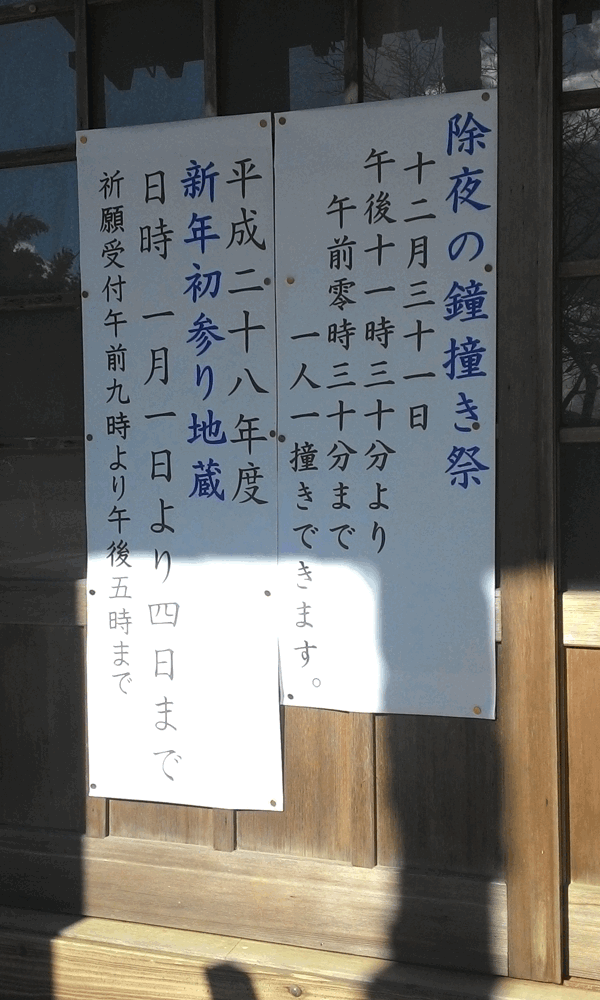 除夜の鐘撞き祭
十二月三十一日
午後十一時三十分より
午前零時三十分まで
一人一撞きできます。
平成二十八年度
新年初参り地蔵
日時 一月一日より四日まで
祈願受付午前九時より午後五時まで